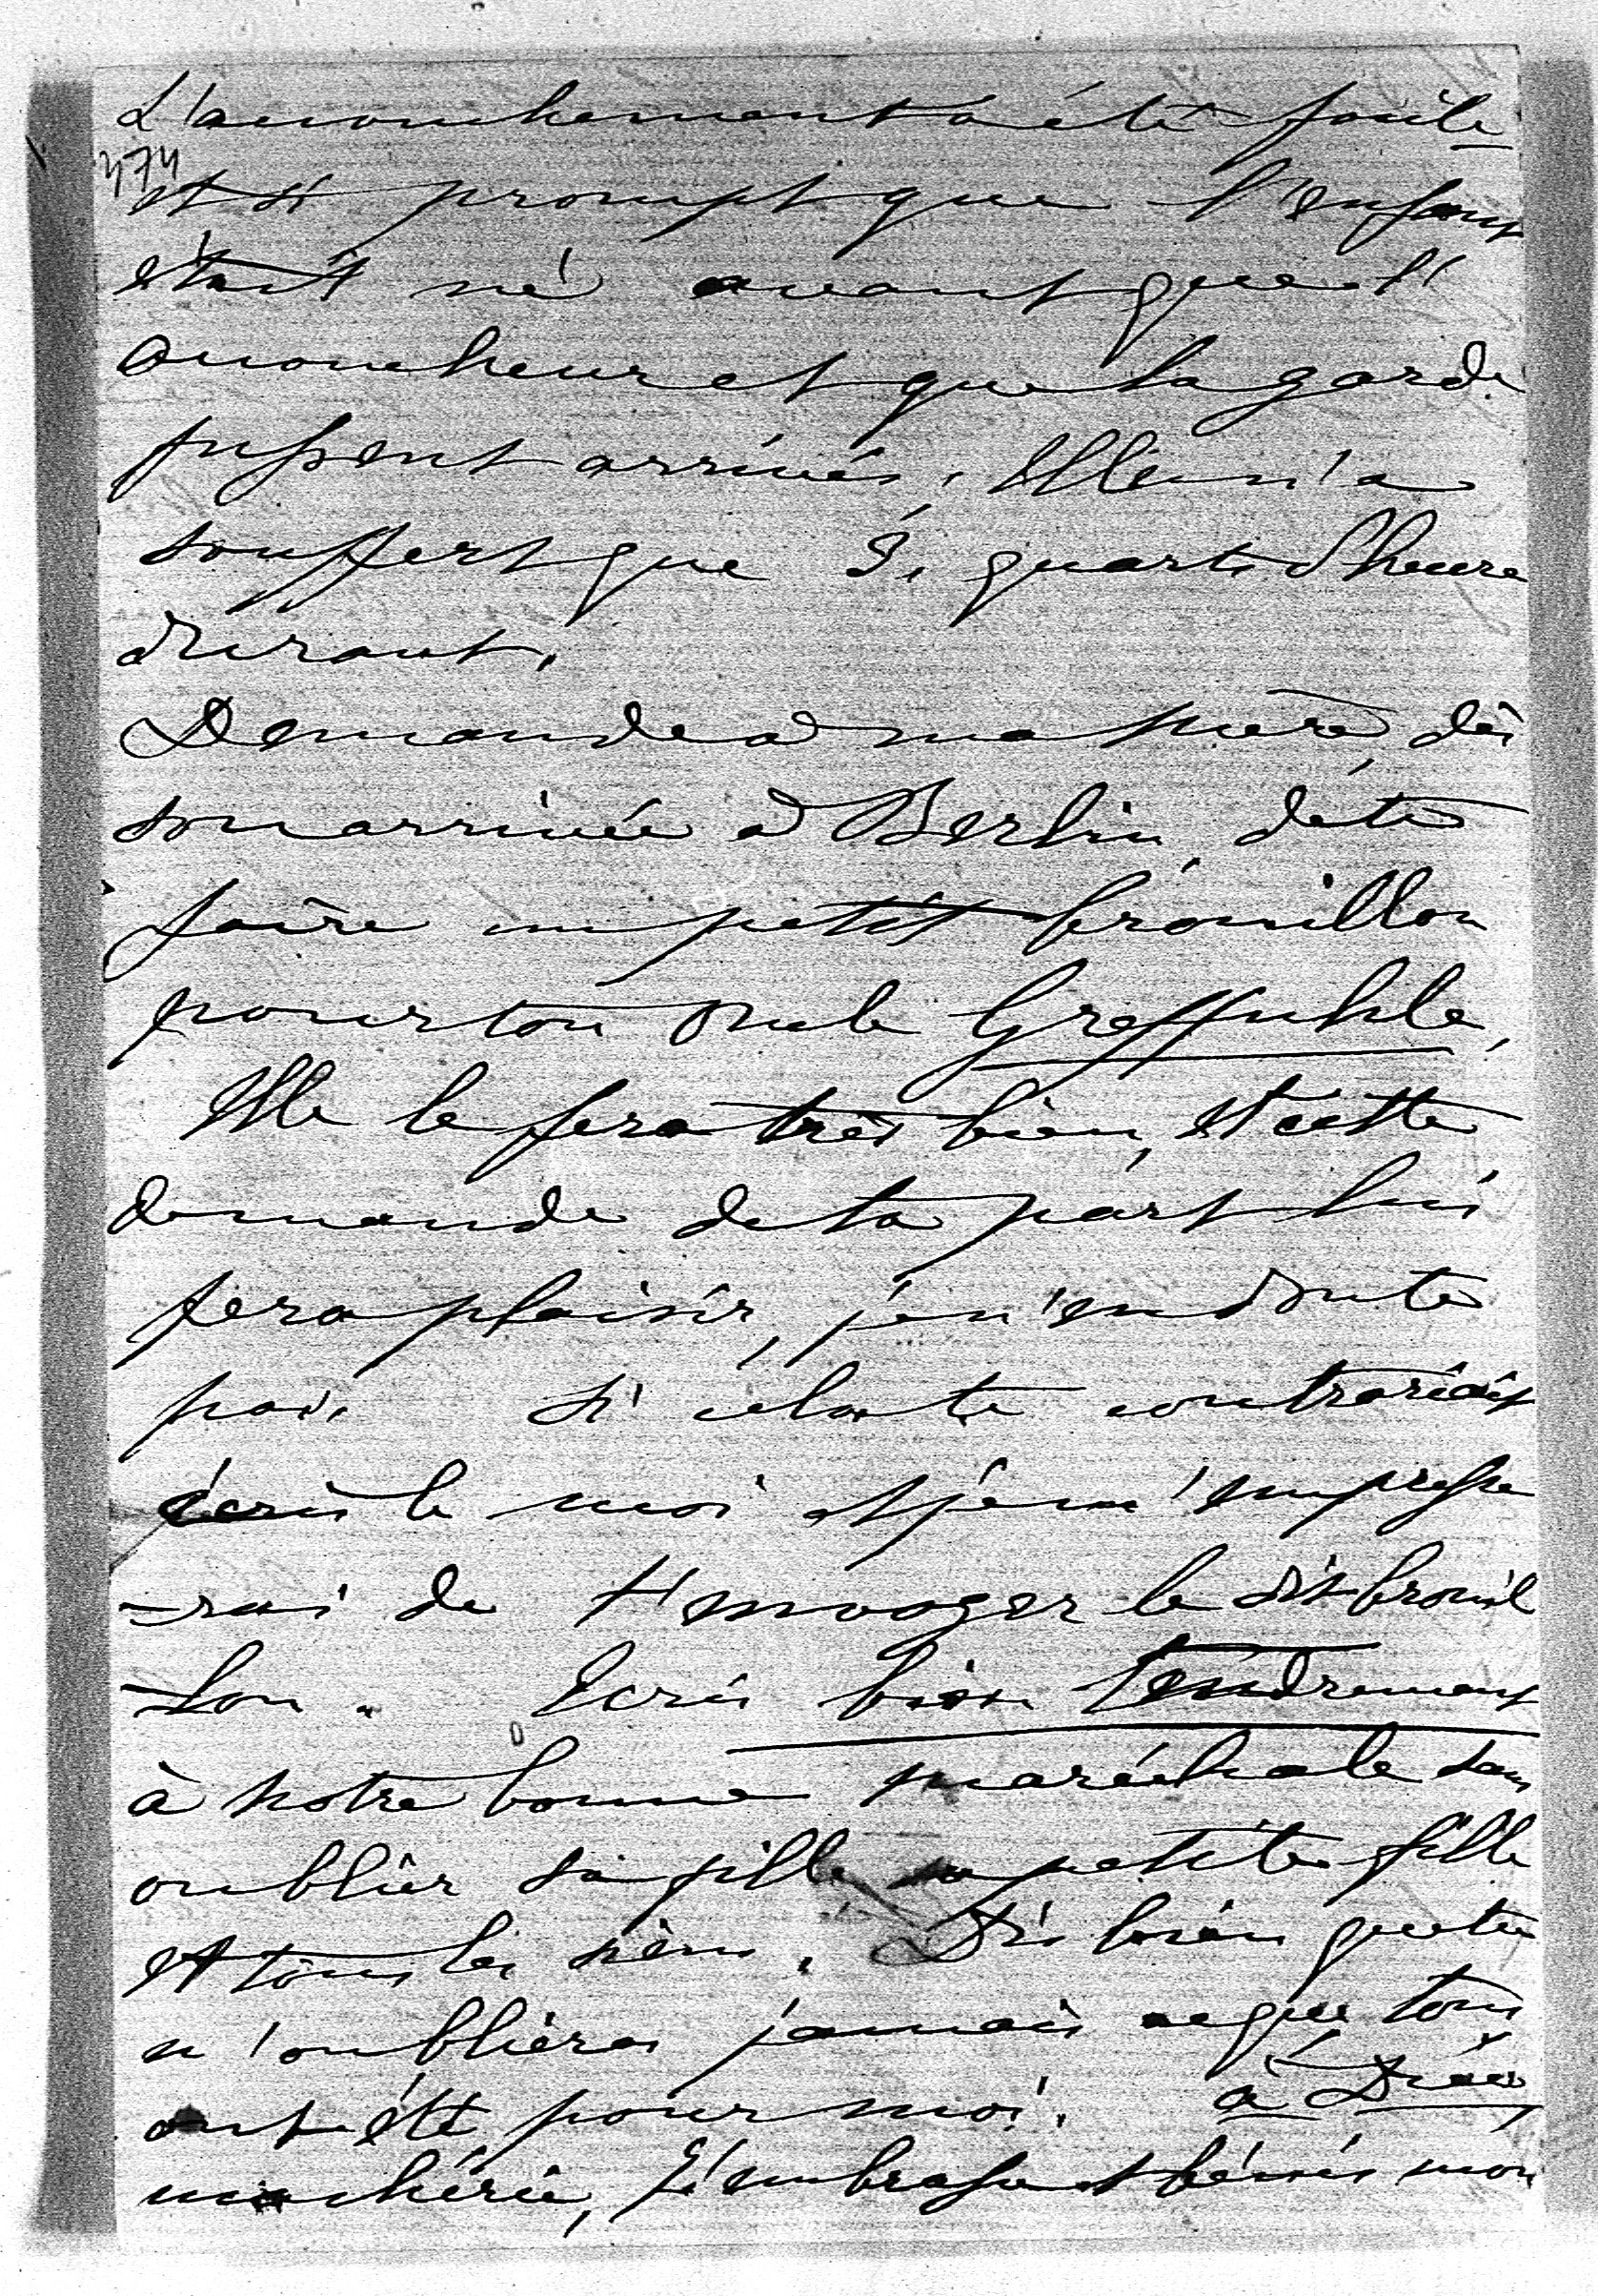 L'accouchement a été facile
474
et si prompt que l'enfant
était né avant que l'
accoucheur et que la garde
fussent arrivés, Elle n'a
souffert que 3, quarts d'heure
durant.
Demande à ma mère, dès
son arrivée à Berlin, de te
faire un petit brouillon
pour ton oncle Greffuhle,
Elle le fera très bien, et cette
demande de ta part lui
fera plaisir, je n'en doute
pas, si cela te contrariait
écris le moi et je m'empresse
-rai de t'envoyer le dit brouil
-lon. Ecris bien tendrement
à notre bonne maréchale sans
oublier sa fille sa petite fille
et tous les siens. Dis bien que tu
n'oublieras jamais ce que tous
ont été pour moi. à Dieu
ma chérie, j'embrasse et bénis mon